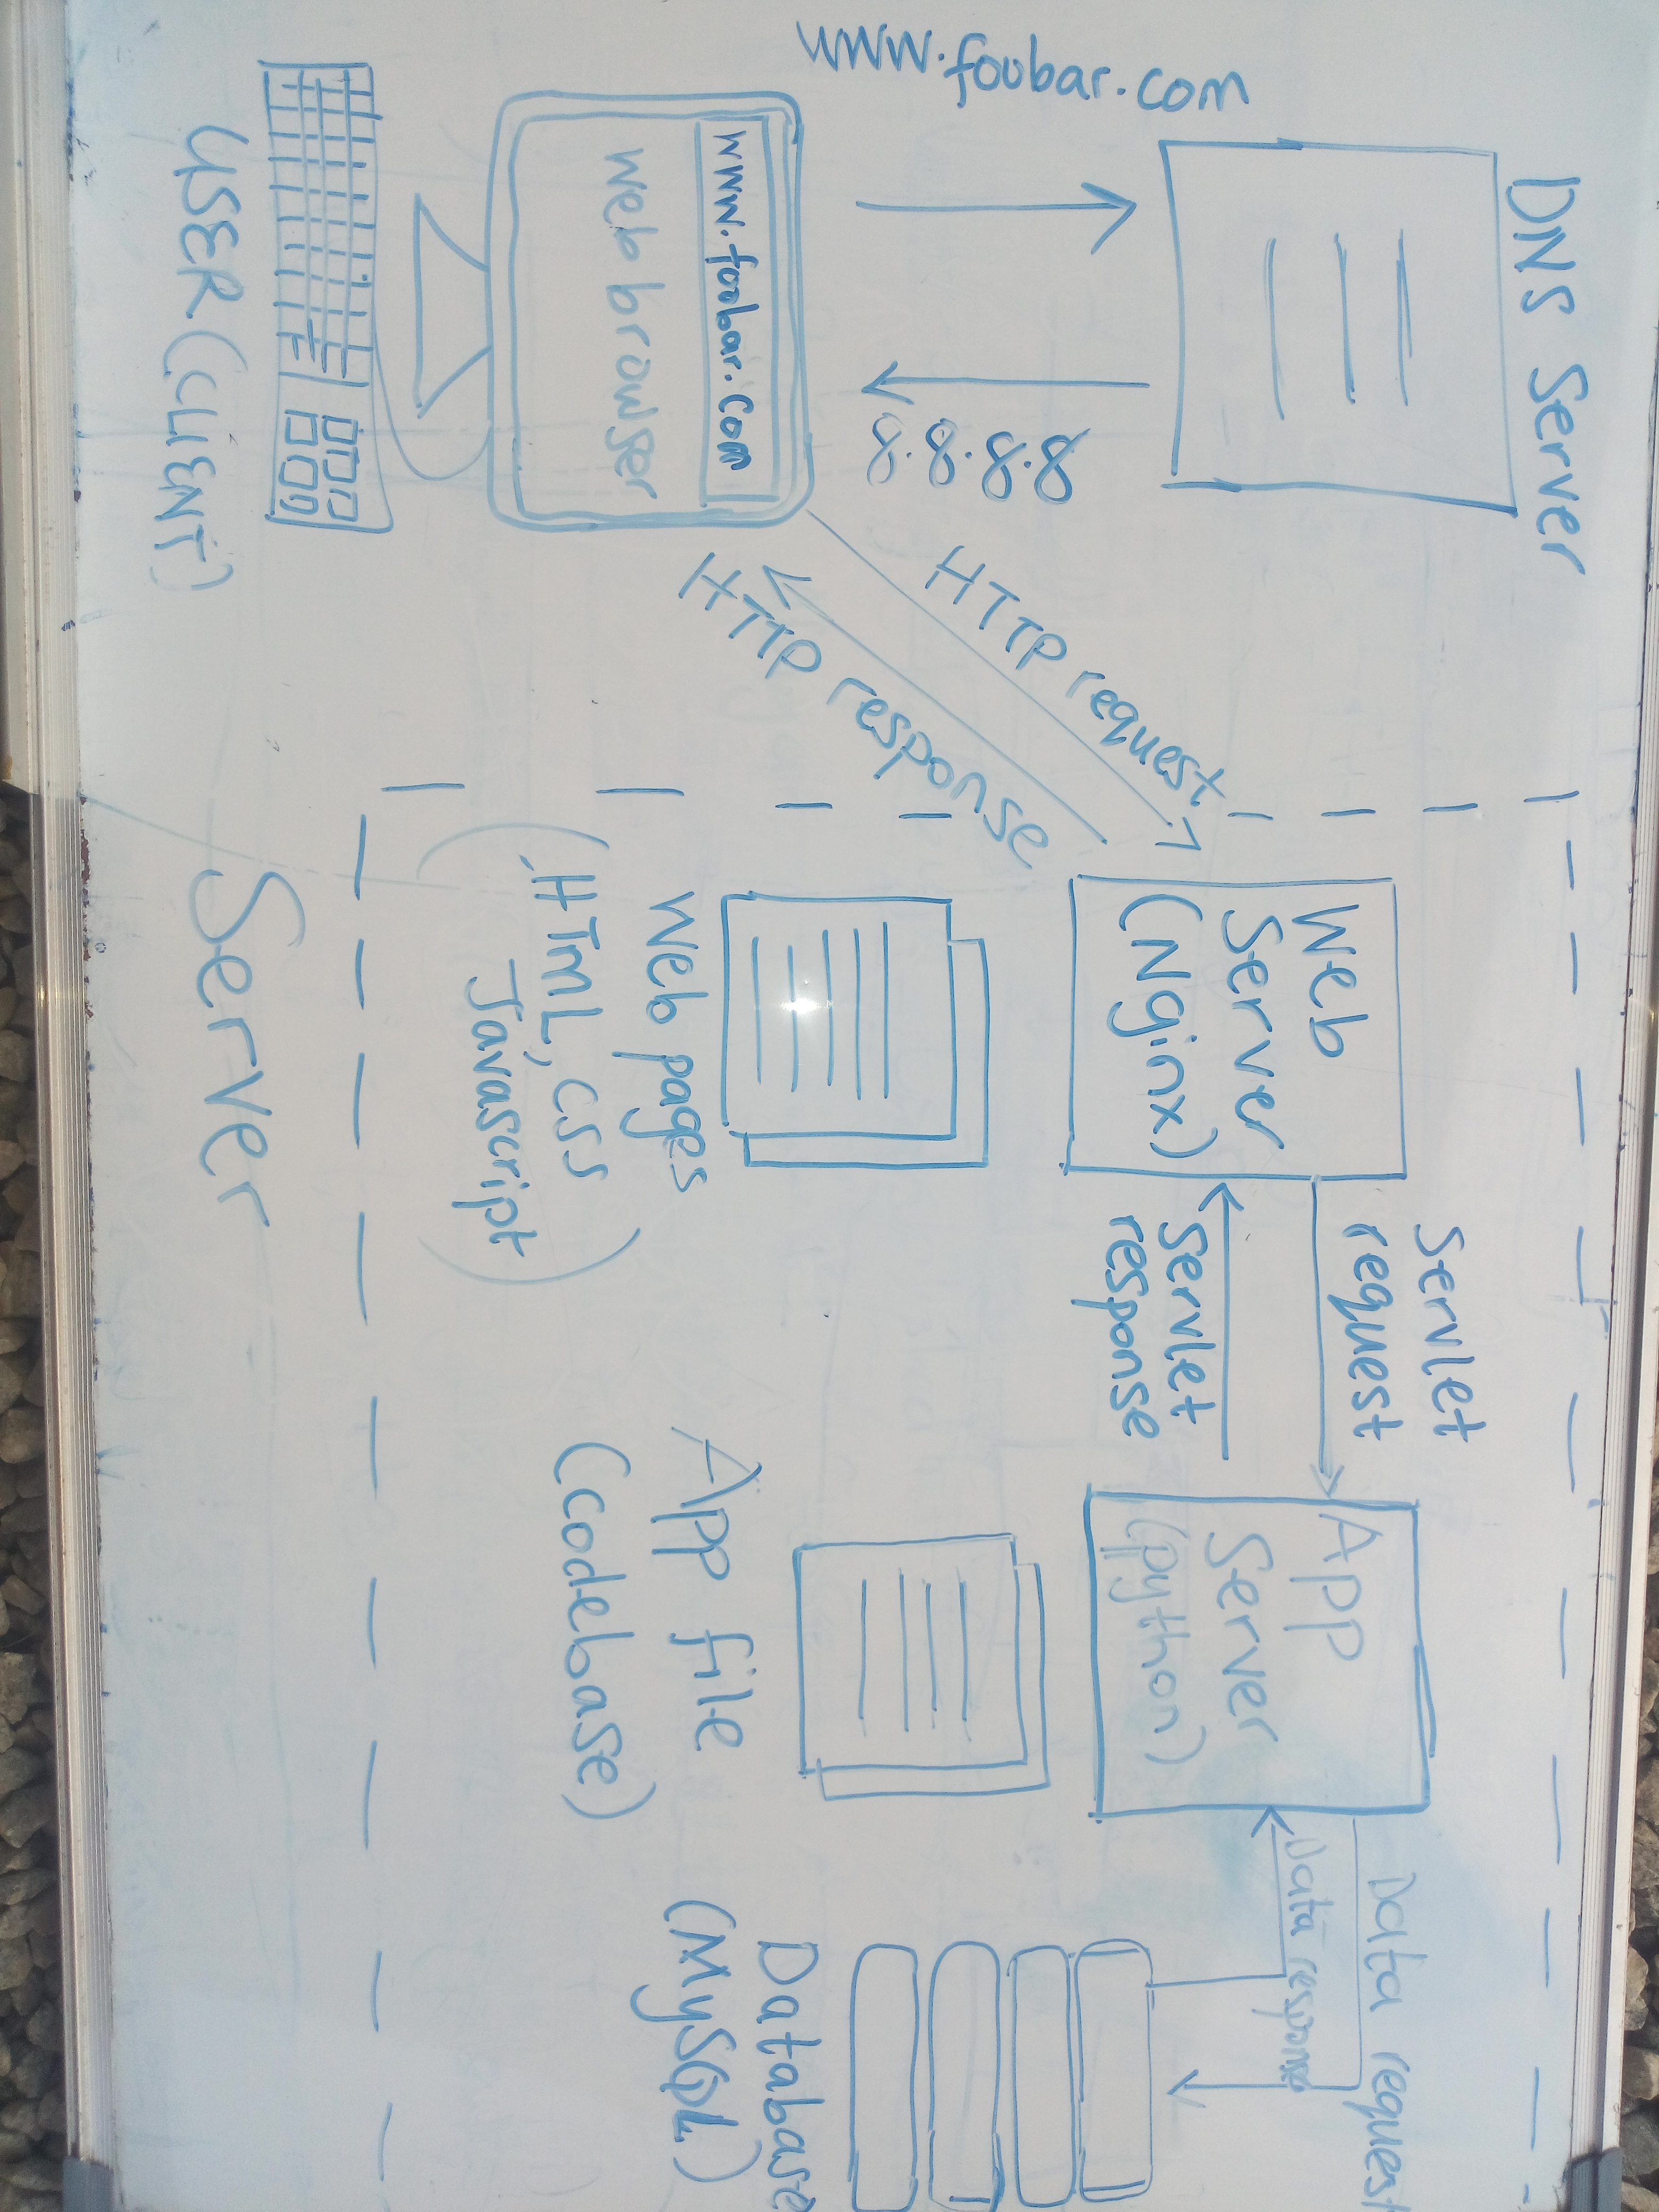 DNS Server
www.foobar.com
8.8.8.8
www.foobar.com
web browser
USER (CLIENT)
HTTP request
HTTP response
Web
Server
(Nginx)
Servlet
request
Servlet
response
App
Server
(python)
Data request
Data response
Web pages
(HTML, CSS
Javascript)
App file
(codebase)
Database
(MySQL)
Server